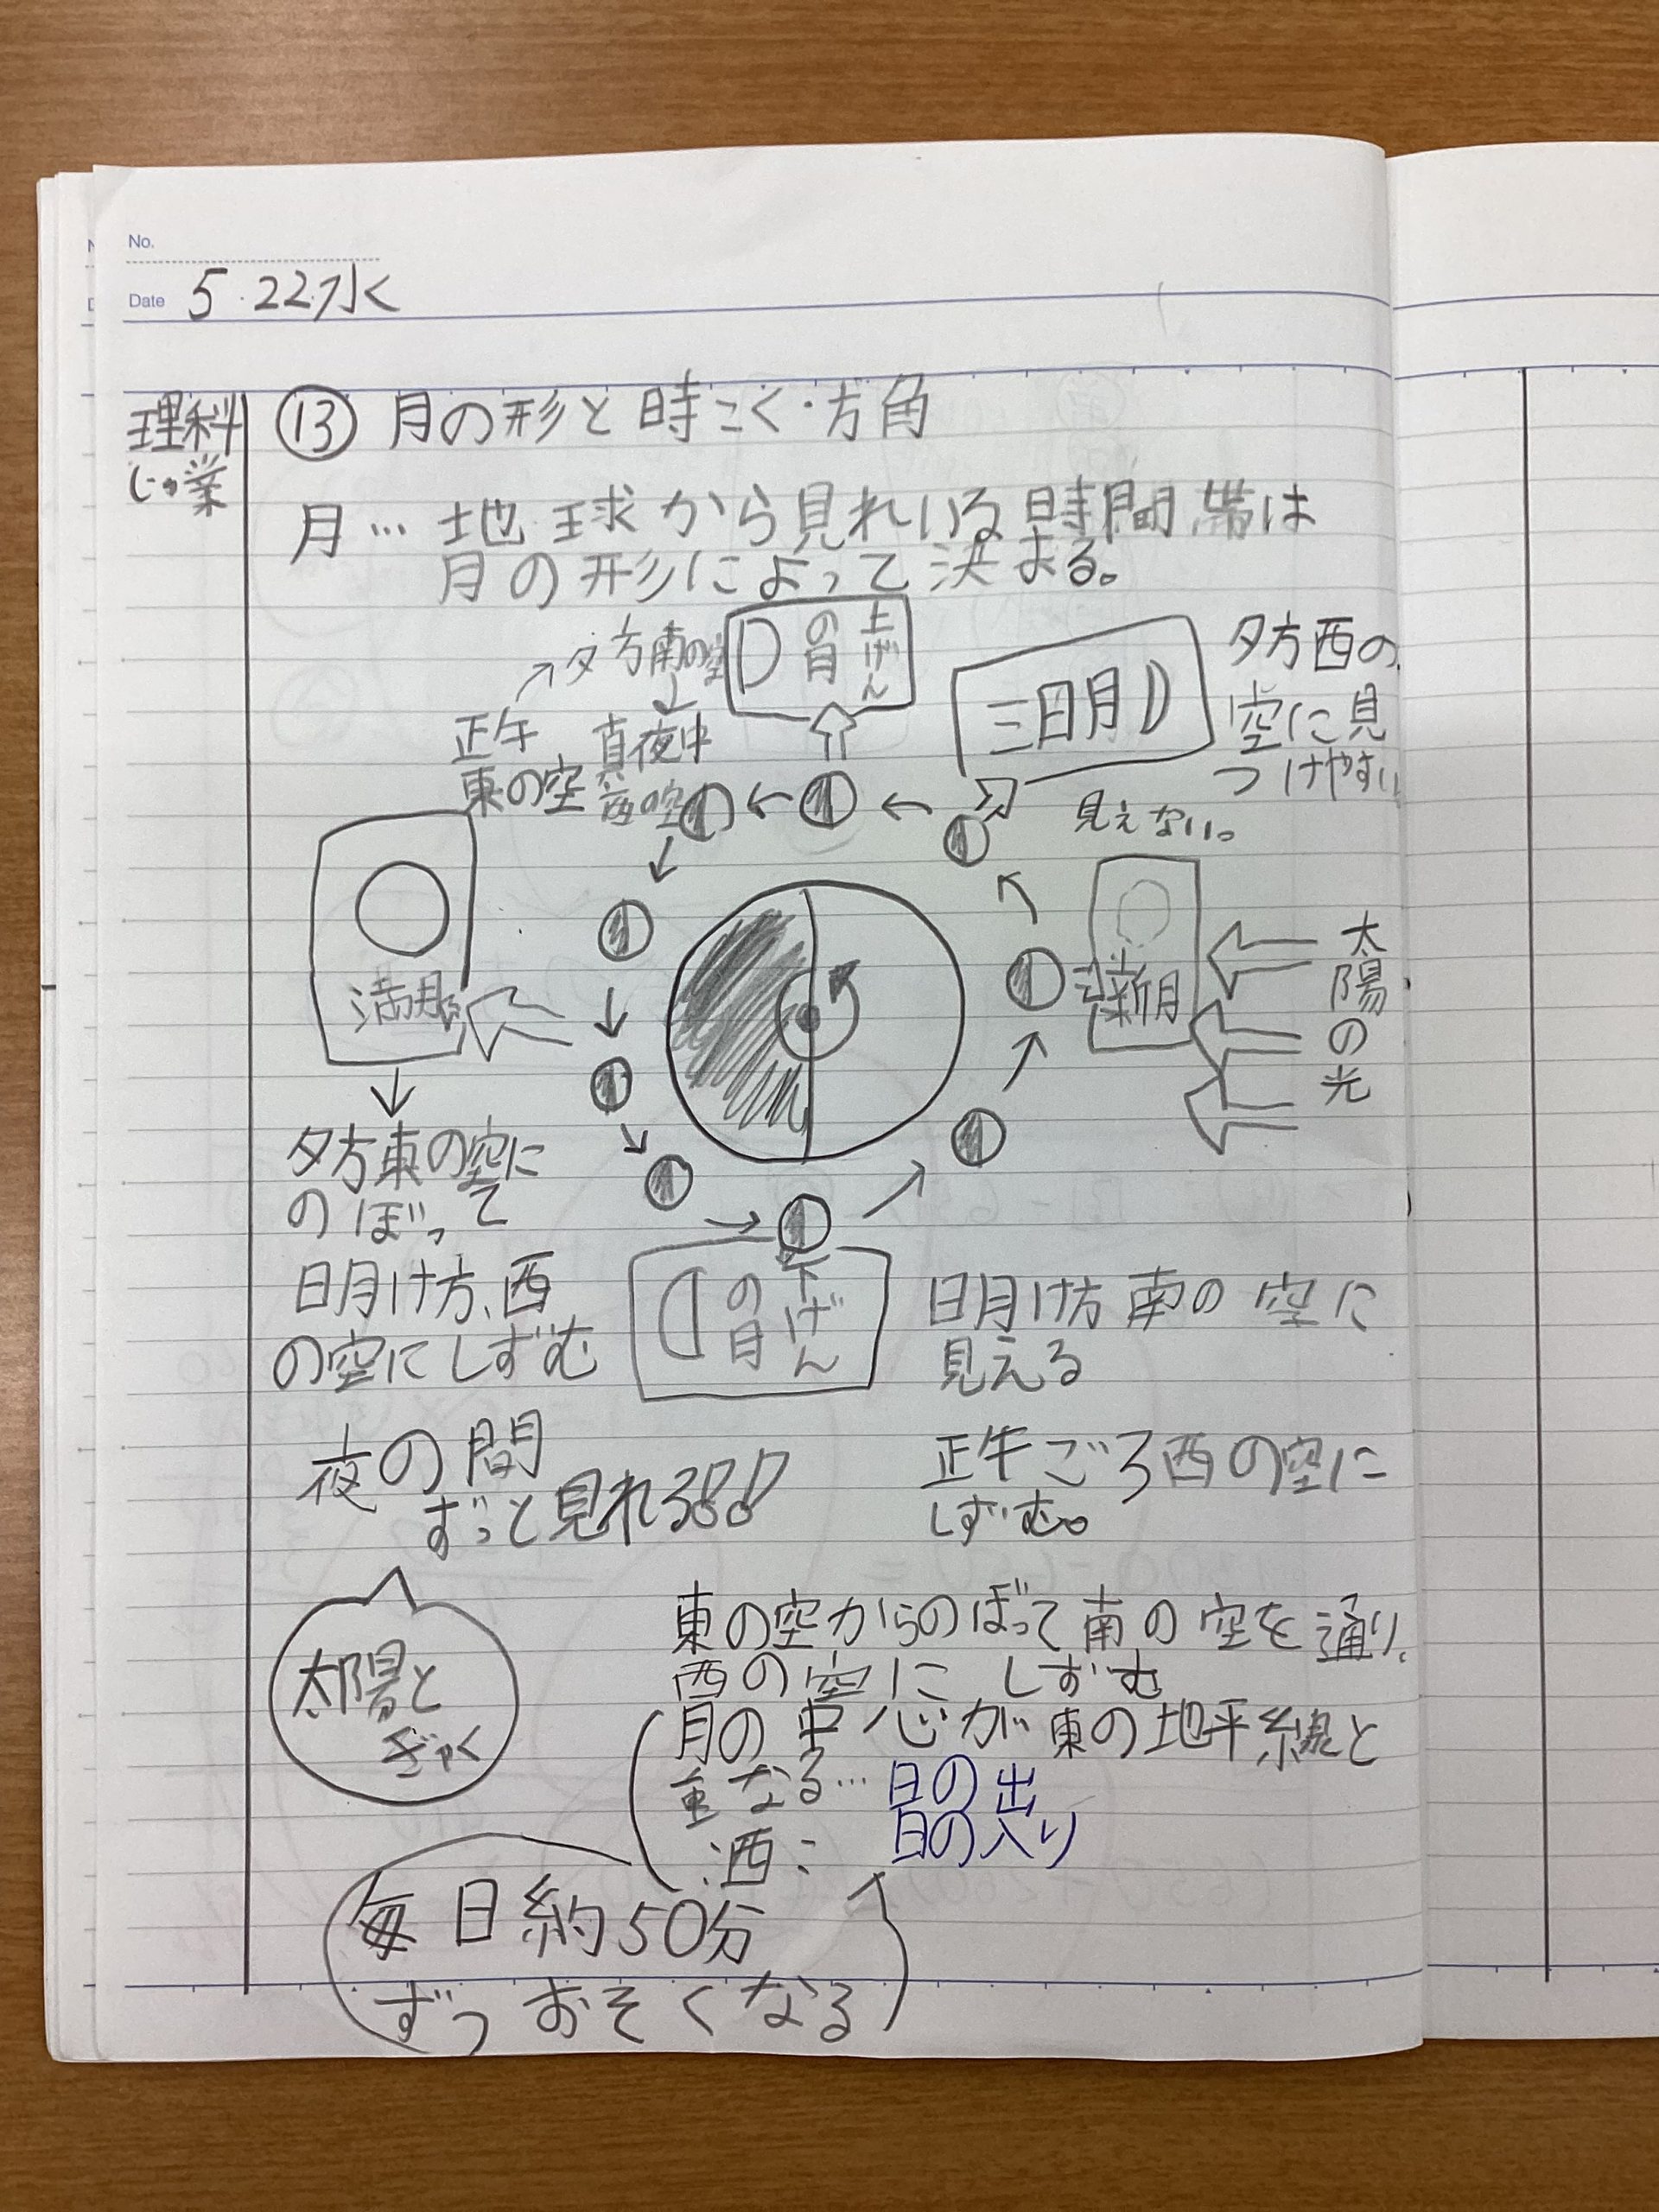 No.
Date 5.22.水
理科
じゅ業
⑬ 月の形と時こく・方角
月… 地球から見れいる時間帯は
月の形によって決まる。
上げん
の月
→夕方南の空
↓
正午
東の空
真夜中
西の空
三日月
夕方西の
空に見
つけやすい
見えない。
新月
太陽の光
満月
夕方東の空に
のぼって
明け方、西
の空にしずむ
下げん
の月
明け方南の空に
見える
夜の間
ずっと見れる!!
正午ごろ西の空に
しずむ。
太陽と
ぎゃく
東の空からのぼって南の空を通り、
西の空に しずむ
月の中心が東の地平線と
重なる… 日の出
西: 日の入り
毎日約50分
ずつおそくなる